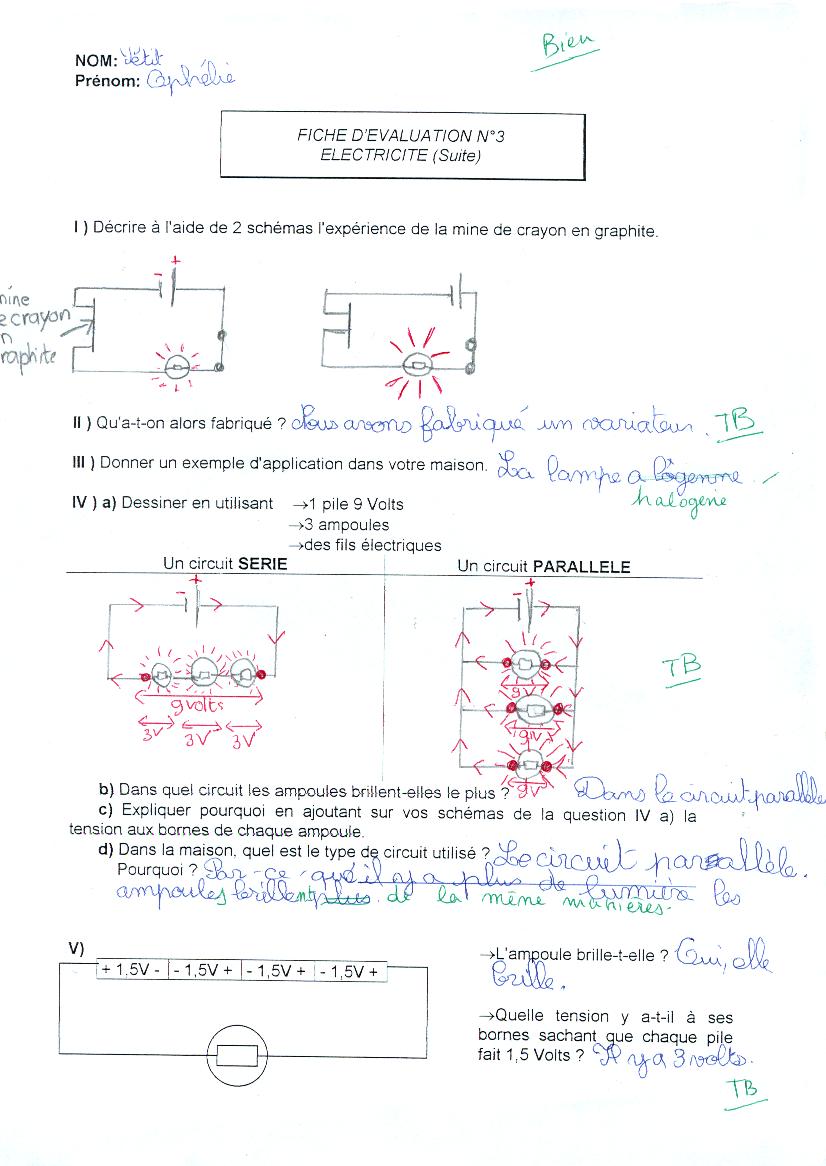 Bien
NOM: Pétit
Prénom: Ophélie
FICHE D'EVALUATION N°3
ELECTRICITE (Suite)
I ) Décrire à l'aide de 2 schémas l'expérience de la mine de crayon en graphite.
- +
mine
de crayon
en
graphite
II ) Qu'a-t-on alors fabriqué ? Nous avons fabriqué un variateur. TB
III ) Donner un exemple d'application dans votre maison. La lampe a l'ogenne
halogène
IV ) a) Dessiner en utilisant →1 pile 9 Volts
→3 ampoules
→des fils électriques
Un circuit SERIE Un circuit PARALLELE
- + - +
9 volts
3V 3V 3V
9V
9V
9V
TB
b) Dans quel circuit les ampoules brillent-elles le plus ? Dans le circuit parallèle
c) Expliquer pourquoi en ajoutant sur vos schémas de la question IV a) la
tension aux bornes de chaque ampoule.
d) Dans la maison, quel est le type de circuit utilisé ? Le circuit parallèle.
Pourquoi ? Par-ce qu'il y a plus de lumière les
ampoules brillent plus. de la même manières.
V)
+ 1,5V - - 1,5V + - 1,5V + - 1,5V +
→L'ampoule brille-t-elle ? Oui, elle
brille.
→Quelle tension y a-t-il à ses
bornes sachant que chaque pile
fait 1,5 Volts ? Il y a 3 volts.
TB